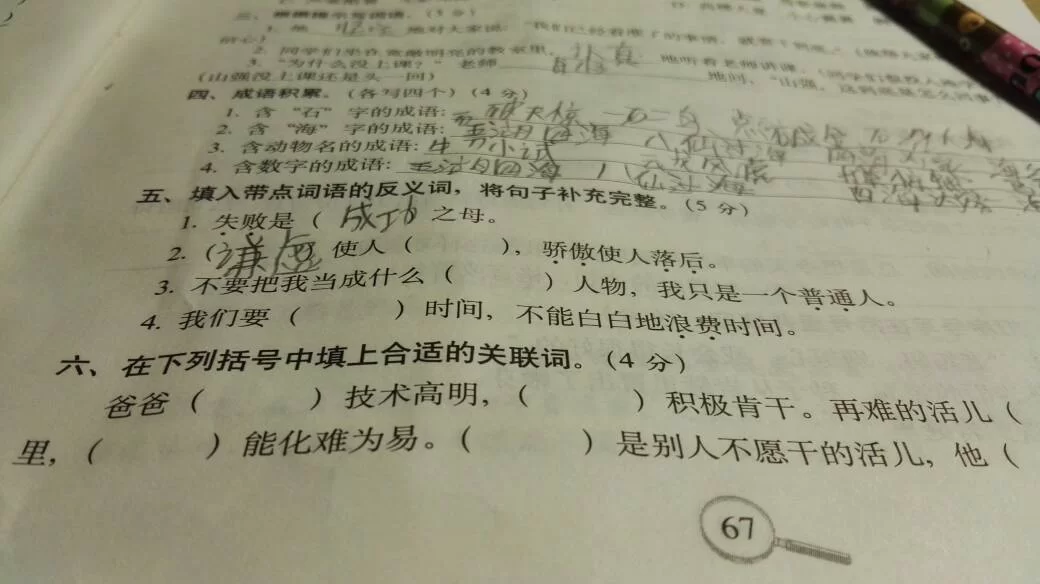 三、根据提示写词语。(3 分)
地对大家说:"我们已经看准了的事情,就要干到底。"
2. 同学们坐在宽敞明亮的教室里, 认真 地听着老师讲课。
3. "为什么没上课?" 老师 地问,"山强,
(山强没上课还是头一回)
四、成语积累。(各写四个)(4 分)
1. 含 "石" 字的成语: 一石二鸟
2. 含 "海" 字的成语: 五湖四海 八仙过海
3. 含动物名的成语: 牛刀小试
4. 含数字的成语: 五湖四海 八仙过海
五、填入带点词语的反义词,将句子补充完整。(5 分)
1. 失败是( 成功 之母。
2. (谦虚) 使人( ),骄傲使人落后。
3. 不要把我当成什么( )人物,我只是一个普通人。
4. 我们要( )时间,不能白白地浪费时间。
六、在下列括号中填上合适的关联词。(4 分)
爸爸( )技术高明,( )积极肯干。再难的活儿(
里,( )能化难为易。( )是别人不愿干的活儿,他(
67